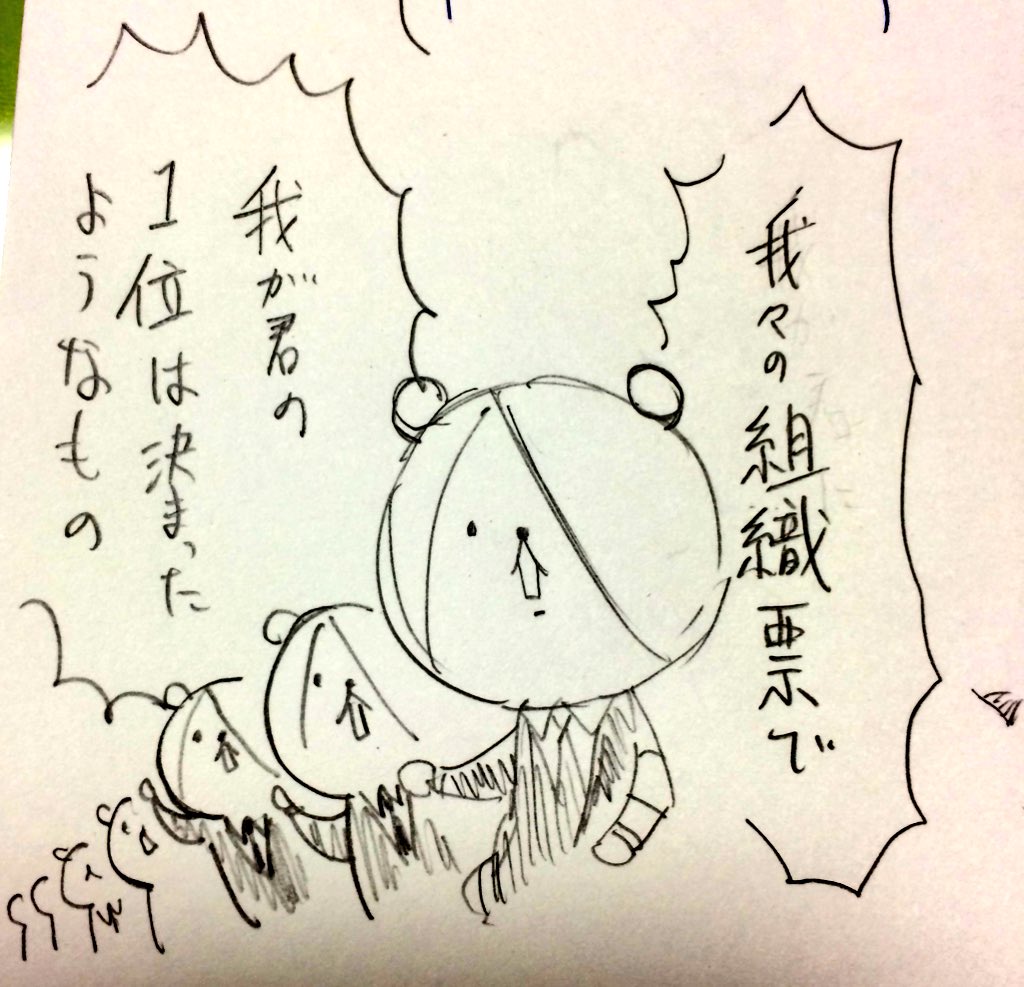 我々の組織票で
我が君の
1位は決まった
ようなもの